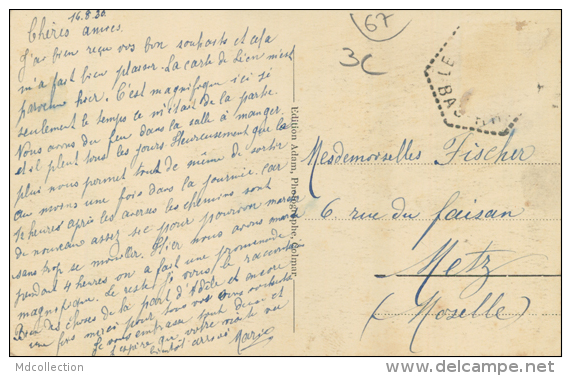 16.8.30
Chères amies.
J'ai bien reçu vos bon souhaits et cela
m'a fait bien plaisir. La carte de Lion m'est
parvenu hier. C'est magnifique ici si
seulement le temps ce n'était de la partie.
Nous avons du feu dans la salle à manger
et il pleut tous les jours. Heureusement que la
pluie nous permet tout de même de sortir
au moins une fois dans la journée, car
heures après les averses les chemins sont
de nouveau assez sec pour pouvoir marcher
sans trop se mouiller. Hier nous avons marché
pendant 4 heures on a fait une promenade
magnifique. Le reste je vous le raconterai
Bien des choses de la part d'Adèle et encore
une fois merci pour tous vos bons souhaits
Je vous embrasse tout doux et
j'espère que votre malte est
bientôt arrivé Maria
Edition Adam, Photographe, Colmar
67
3C
LE
BAS-RHIN
Mesdemoiselles Fischer
6. rue du faisan
Metz
(Moselle)
Mdcollection
http://mdcollection.delcampe.net